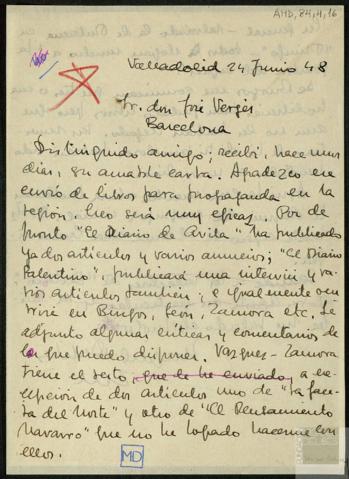 AMD, 84,4,16
Valladolid 24 Junio 48
Sr. don José Vergés
Barcelona
Distinguido amigo; recibí, hace unos
días, su amable carta. Agradezco en
envío de libros para propaganda en la
región. Creo será muy eficaz. Por de
pronto "El Diario de Avila" ha publicado
ya dos artículos y varios anuncios; "El Diario
Palentino", publicará una interviu y va-
rios artículos también; e igualmente ocu-
rrirá en Burgos, León, Zamora etc. Le
adjunto algunas críticas y comentarios de
los que puedo disponer. Vazquez-Zamora
tiene el resto que le he enviado, a ex-
cepción de dos artículos uno de "La Gace-
ta del Norte" y otro de "El Pensamiento
Navarro" que no he logrado hacerme con
ellos.
MD